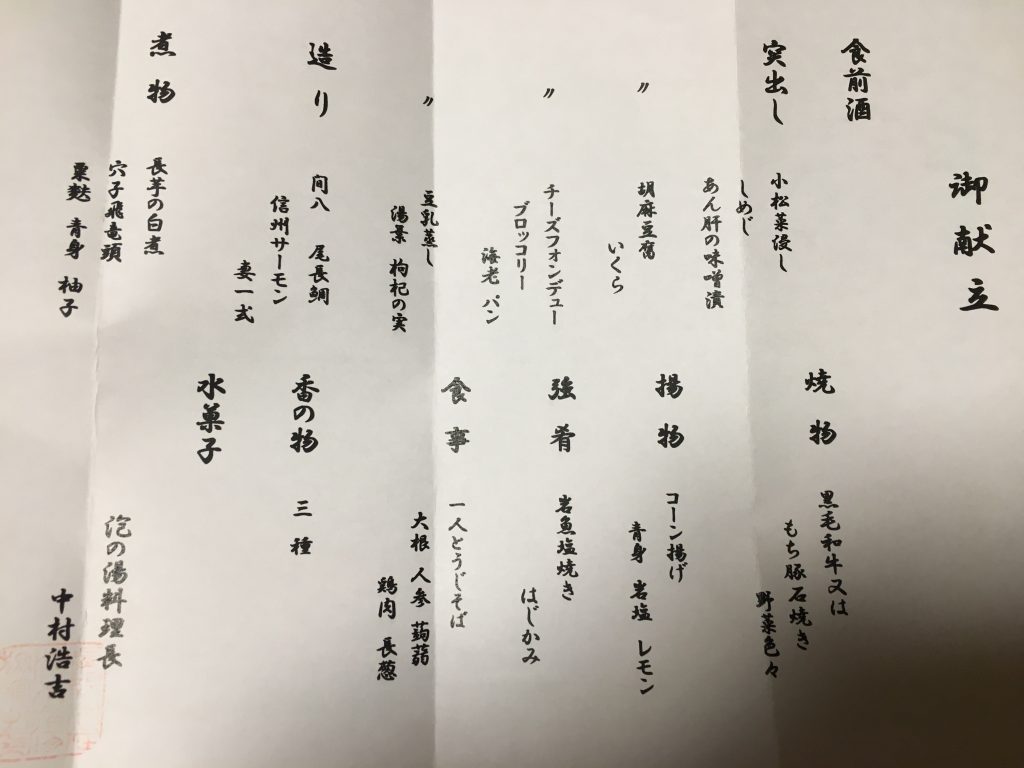 御献立
食前酒
突出し
小松菜浸し
しめじ
あん肝の味噌漬
〃
胡麻豆腐
いくら
〃
チーズフォンデュー
ブロッコリー
海老 パン
〃
豆乳蒸し
湯景 枸杞の実
造り
間八 尾長鯛
信州サーモン
妻一式
煮物
長芋の白煮
穴子飛竜頭
粟麩 青身 柚子
焼物
黒毛和牛又は
もち豚石焼き
野菜色々
揚物
コーン揚げ
青身 岩塩 レモン
強肴
岩魚塩焼き
はじかみ
食事
一人とうじそば
大根 人参 蒟蒻
鶏肉 長葱
香の物
三種
水菓子
泡の湯料理長
中村浩吉